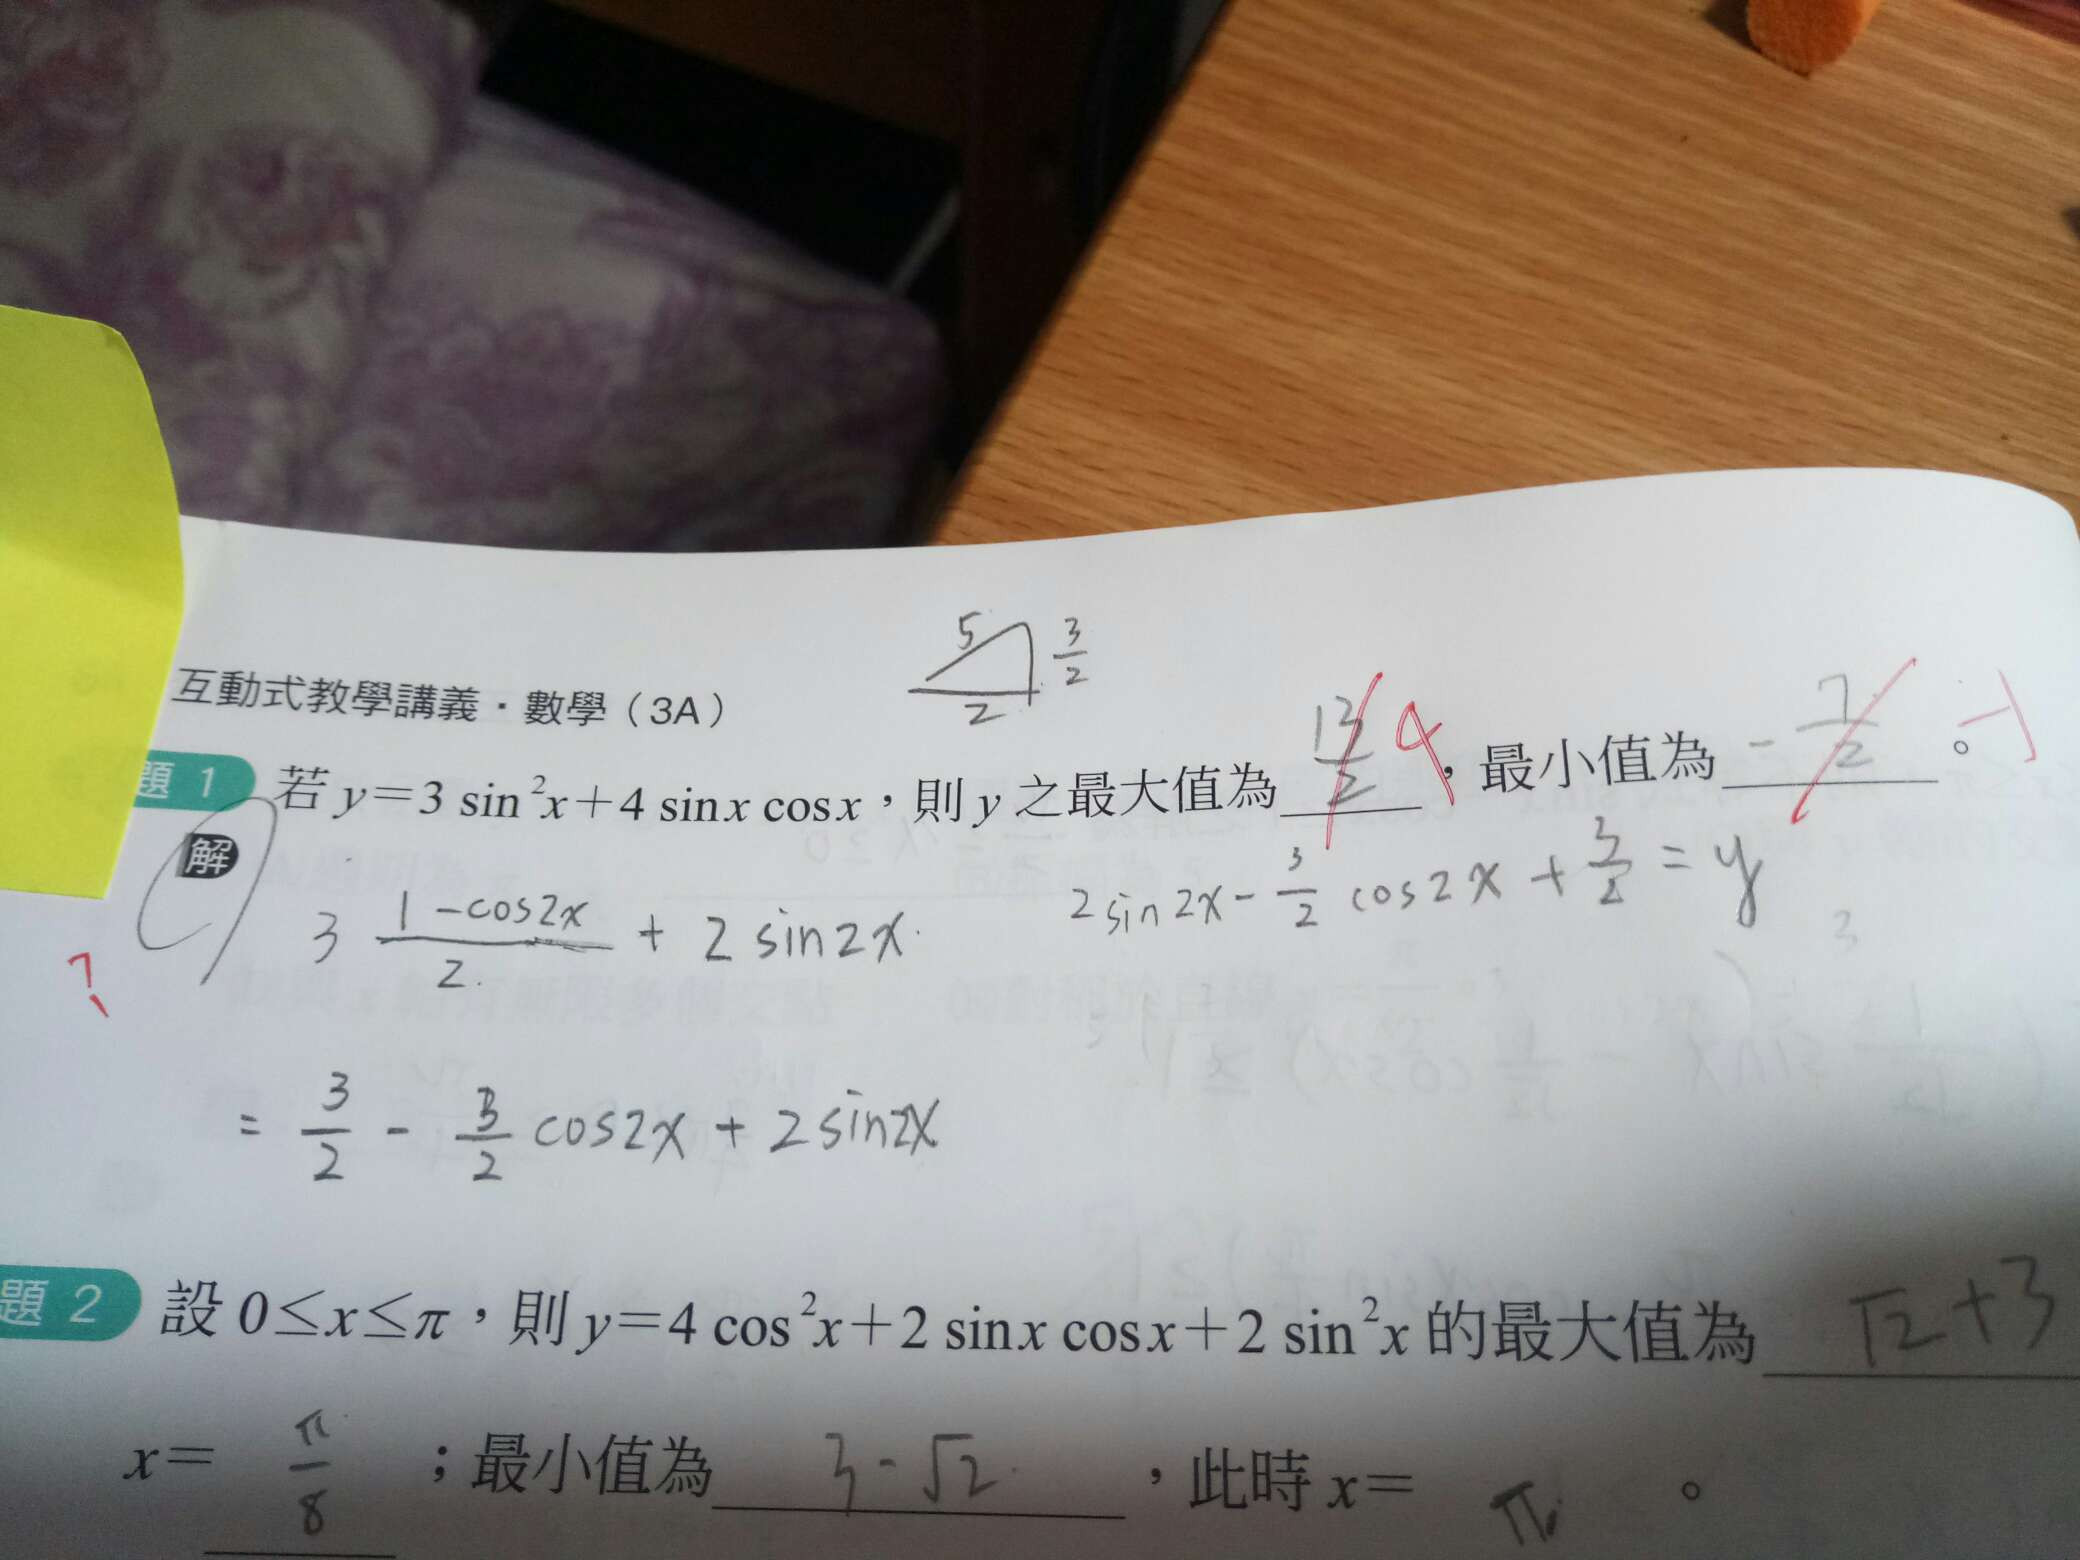 5 3/2
2
互動式教學講義・數學（3A）
題 1 若 y＝3 sin²x＋4 sinx cosx，則 y 之最大值為 13/2 4，最小值為 -7/2 。-1
解
3 (1-cos2x)/2 + 2 sin2x. 2sin2x - 3/2 cos2x + 3/2 = y
?
= 3/2 - 3/2 cos2x + 2sin2x
題 2 設 0≤x≤π，則 y＝4 cos²x＋2 sinx cosx＋2 sin²x 的最大值為 √2+3
x＝ π/8 ；最小值為 3-√2 ，此時 x＝ π 。